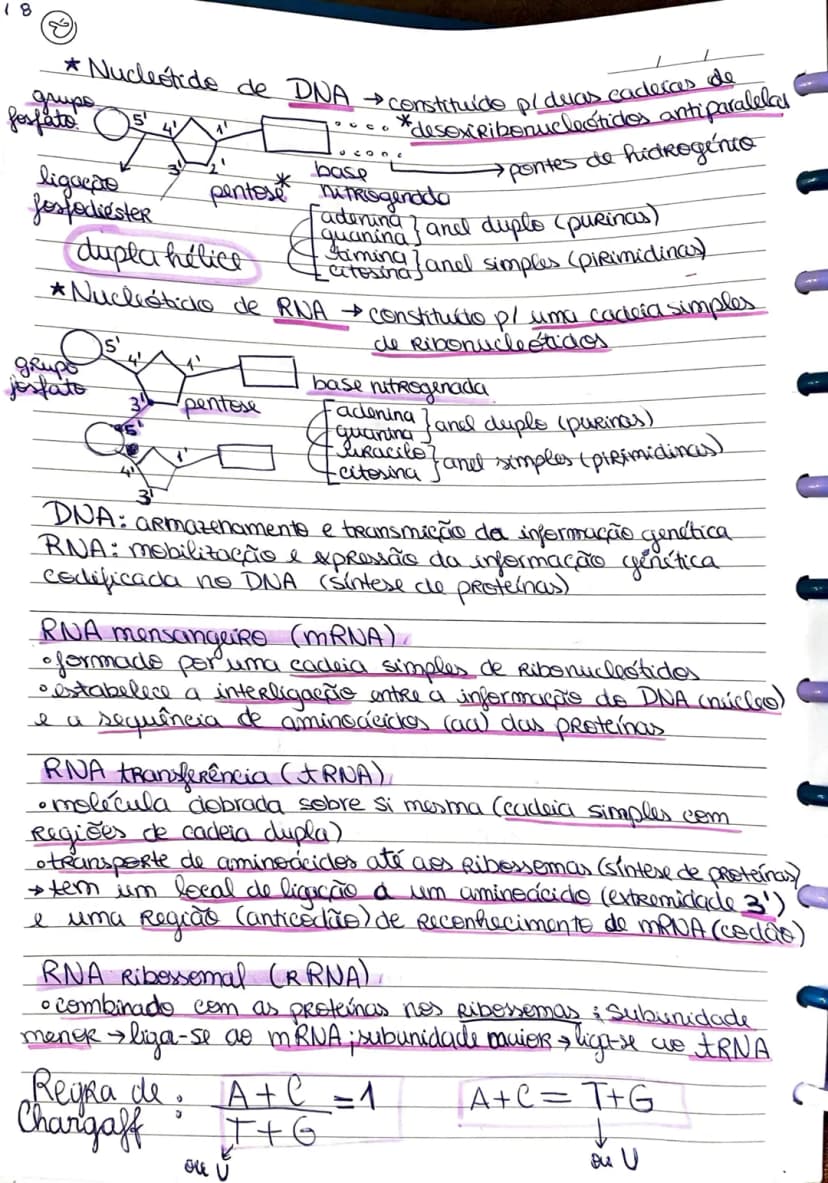 18
* Nucleótido de DNA → constituído p/ duas cadeias de
*desoxirribonucleótidos antiparalelas
grupo
fosfato
5'
4'
1'
3'
2'
→ pontes de hidrogénio
ligação
fosfodiéster
pentose*
base
nitrogenada
adenina
guanina } anel duplo (purinas)
timina
citosina } anel simples (pirimidinas)
dupla hélice
* Nucleótido de RNA → constituído p/ uma cadeia simples
de Ribonucleótidos
grupo
fosfato
5'
4'
1'
3'
pentose
base nitrogenada
adenina
guanina } anel duplo (purinas)
uracilo
citosina } anel simples (pirimidinas)
5'
4'
1'
3'
DNA: armazenamento e transmição da informação genética
RNA: mobilização e expressão da informação genética
codificada no DNA (síntese de proteínas)
RNA mensangeiro (mRNA)
• formado por uma cadeia simples de Ribonucleótidos
• estabelece a interligação entre a informação do DNA (núcleo)
e a sequência de aminoácidos (aa) das proteínas
RNA transferência (tRNA)
• molécula dobrada sobre si mesma (cadeia simples com
Regiões de cadeia dupla)
• transporte de aminoácidos até aos Ribossomas (síntese de proteínas)
→ tem um local de ligação a um aminoácido (extremidade 3')
e uma Região (anticodão) de reconhecimento do mRNA (codão)
RNA Ribossomal (rRNA)
• combinado com as proteínas nos Ribossomas ; Subunidade
menor → liga-se ao mRNA ; subunidade maior → liga-se ao tRNA
Regra de
Chargaff :
A+C / T+G = 1
A+C = T+G
ou U
ou U